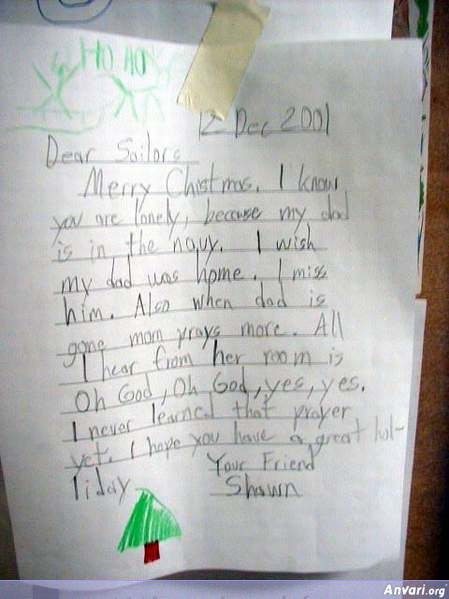 HO HO HO
12 Dec 2001
Dear Sailors
Merry Chistmas. I know
you are lonely, because my dad
is in the navy. I wish
my dad was home. I miss
him. Also when dad is
gone mom prays more. All
I hear from her room is
Oh God, Oh God, yes, yes.
I never learned that prayer
yet. I hope you have a great hol-
liday
Your Friend
Shawn
Anvari.org